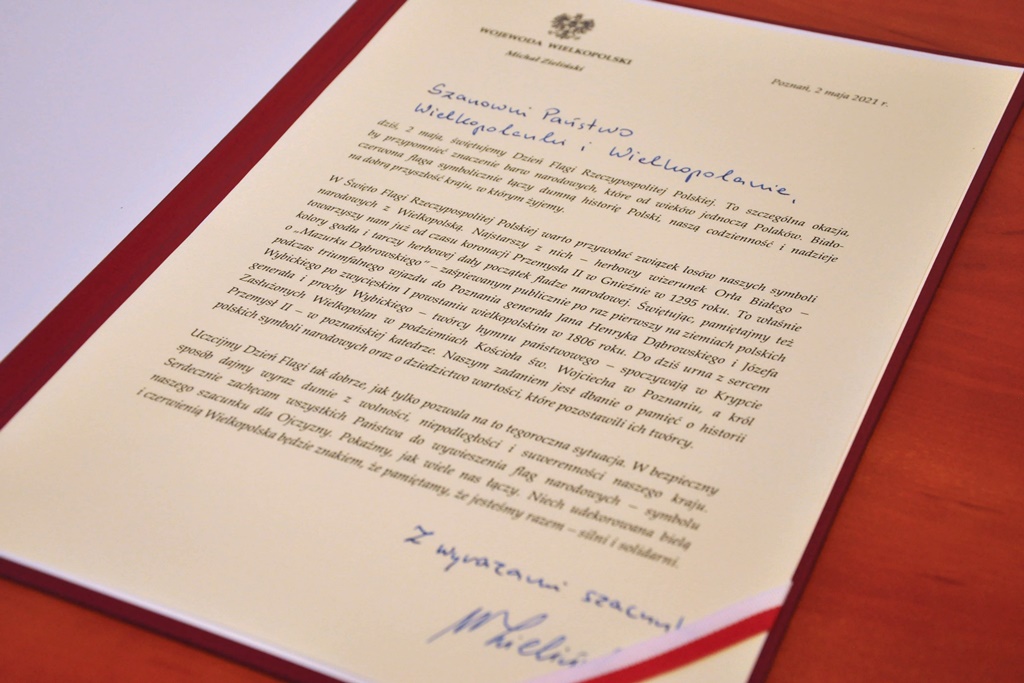 WOJEWODA WIELKOPOLSKI
Michał Zieliński
Poznań, 2 maja 2021 r.
Szanowni Państwo
Wielkopolanki i Wielkopolanie,
dziś, 2 maja, świętujemy Dzień Flagi Rzeczypospolitej Polskiej. To szczególna okazja,
by przypomnieć znaczenie barw narodowych, które od wieków jednoczą Polaków. Biało-
czerwona flaga symbolicznie łączy dumną historię Polski, naszą codzienność i nadzieje
na dobrą przyszłość kraju, w którym żyjemy.
W Święto Flagi Rzeczypospolitej Polskiej warto przywołać związek losów naszych symboli
narodowych z Wielkopolską. Najstarszy z nich – herbowy wizerunek Orła Białego –
towarzyszy nam już od czasu koronacji Przemysła II w Gnieźnie w 1295 roku. To właśnie
kolory godła i tarczy herbowej dały początek fladze narodowej. Świętując, pamiętajmy też
o „Mazurku Dąbrowskiego” – zaśpiewanym publicznie po raz pierwszy na ziemiach polskich
podczas triumfalnego wjazdu do Poznania generała Jana Henryka Dąbrowskiego i Józefa
Wybickiego po zwycięskim I powstaniu wielkopolskim w 1806 roku. Do dziś urna z sercem
generała i prochy Wybickiego – twórcy hymnu państwowego – spoczywają w Krypcie
Zasłużonych Wielkopolan w podziemiach Kościoła św. Wojciecha w Poznaniu, a król
Przemysł II – w poznańskiej katedrze. Naszym zadaniem jest dbanie o pamięć o historii
polskich symboli narodowych oraz o dziedzictwo wartości, które pozostawili ich twórcy.
Uczcijmy Dzień Flagi tak dobrze, jak tylko pozwala na to tegoroczna sytuacja. W bezpieczny
sposób dajmy wyraz dumie z wolności, niepodległości i suwerenności naszego kraju.
Serdecznie zachęcam wszystkich Państwa do wywieszenia flag narodowych – symbolu
naszego szacunku dla Ojczyzny. Pokażmy, jak wiele nas łączy. Niech udekorowana bielą
i czerwienią Wielkopolska będzie znakiem, że pamiętamy, że jesteśmy razem – silni i solidarni.
Z wyrazami szacun